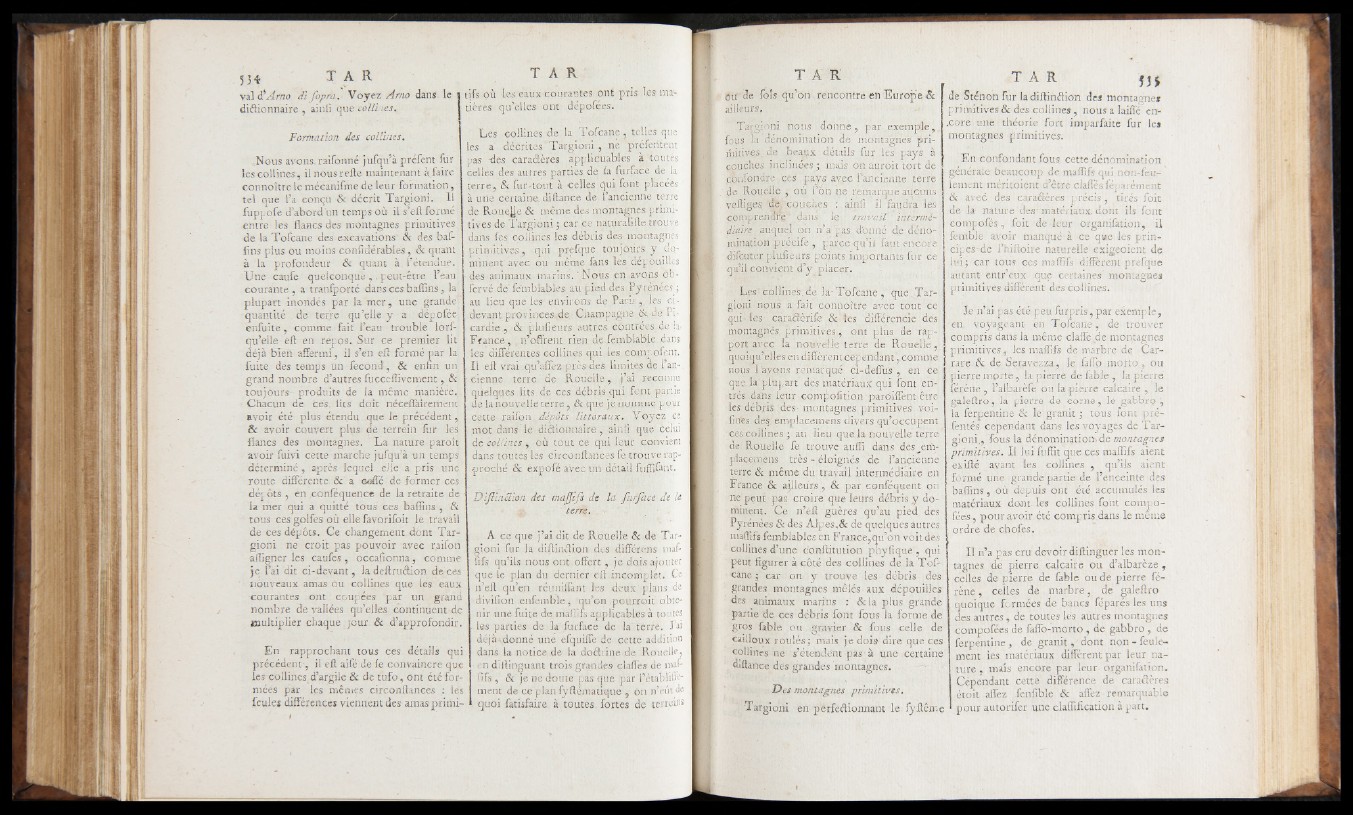 534 T A R
val d'Arno di sopra. Voyez Arno dans le
dictionnaire, ainsi que collines.
Formation des collines.
Nous avons raisonné jusqu'à présent sur
les collines, il nous reste maintenant à faire
connoître le mécanisme de leur formation,
tel que l'a conçu & décrit Targioni. Il
suppose d'abord un temps où il s'est formé
entre les flancs des montagnes primitives
de la Toscane des excavations & des bas-
sins plus ou moins considérables, & quant
à la profondeur & quant à l'étendue.
Une cause quelconque, peut-être l'eau
courante, a transporté dans ces bassins, la
plupart inondés par la mer, une grande
quantité de terre qu'elle y a déposée
ensuite, comme fait l'eau trouble lors-
qu'elle est en repos. Sur ce premier lit
déjà bien affermi, il s'en est formé par la
suite des temps un second, & enfin un
grand nombre d'autres successivement, &
toujours produits de la même manière.
Chacun de ces lits doit nécessairement
avoir été plus étendu que le précédent,
& avoir couvert plus de terrein sur les
flancs des montagnes. La nature paroît
avoir suivi cette marche jusqu'à un temps
déterminé, après lequel elle a pris une
route différente & a cessé de former ces
dépôts, en conséquence de la retraite de
la mer qui a quitté tous ces bassins, &
tous ces golfes où elle favorisoit le travail
de ces dépôts. Ce changement dont Tar-
gioni ne croit pas pouvoir avec raison
assigner les causes, occasionna, comme
je l'ai dit ci-devant, la destruction de ces
nouveaux amas ou collines que les eaux
courantes ont coupées par un grand
nombre de vallées qu'elles continuent de
multiplier chaque jour & d'approfondir.
En rapprochant tous ces détails qui
précédent, il est aisé de se convaincre que
les collines d'argile & de tufo, ont été for-
mées par les mêmes circonstances : les
seules différences viennent des amas primi-
T A R
tifs où les eaux courantes ont pris les ma-
tières qu'elles ont déposées.
Les collines de la Toscane, telles que
les a décrites Targioni, ne présentent
pas des caractères applicuables à toutes
celles des autres parties de la surface de la
terre, & sur-tout à celles qui sont placées
à une certaine distance de l'ancienne terre
de Rouelle & même des montagnes primi-
tives de Targioni ; car ce naturaliste trouve
dans ses collines les débris des montagnes
primitives, qui presque toujours y do-
minent avec ou même sans les dépouilles
des animaux marins. Nous en avons ob-
servé de semblables au pied des Pyrénées ;
au lieu que les environs de Paris, les ci-
devant provinces de Champagne & de Pi-
cardie, & plusieurs autres contrées de la
France, n'offrent rien de semblable dans
les différentes collines qui les composent.
Il est vrai qu'assez près des limites de l'an-
cienne terre de Rouelle, j'ai reconnu
quelques lits de ces débris qui font partie
de la nouvelle terre, & que je nomme pour
cette raison dépôts littoraux. Voyez ce
mot dans le dictionnaire, ainsi que celui
de collines, où tout ce qui leur convient
dans toutes les circonstances se trouve rap-
proché & exposé avec un détail suffisant.
Distinction des massifs de la surface de la
terre.
A ce que j'ai dit de Rouelle & de Tar-
gioni sur la distinction des différens mas-
sifs qu'ils nous ont offert, je dois ajouter
que le plan du dernier est incomplet. Ce
n'est qu'en réunissant les deux plans de
division ensemble, qu'on pourroit obte-
nir une suite de massifs applicables à toutes
les parties de la surface de la terre. J'ai
déjà donné une esquisse de cette addition
dans la notice de la doctrine de Rouelle,
en distinguant trois grandes classes de mas-
sifs, & je ne doute pas que par l'établisse-
ment de ce plan systématique, on n'eût de
quoi satisfaire à toutes sortes de terreins
T A R
ou de sols qu'on rencontre en Europe &
ailleurs.
Targioni nous donne, par exemple,
sous la dénomination de montagnes pri-
mitives de beaux détails sur les pays à
couches inclinées ; mais on auroit tort de
confondre ces pays avec l'ancienne terre
de Rouelle, où l'on ne remarque aucuns
vestiges de couches : ainsi il faudra les
comprendre dans le travail intermé-
diaire auquel on n'a pas donné de déno-
mination précise, parce qu'il faut encore
discuter plusieurs points importans sur ce
qu'il convient d'y placer.
Les collines de la Toscane, que Tar-
gioni nous a fait connoître avec tout ce
qui les caractérise & les différencie des
montagnes primitives, ont plus de rap-
port avec la nouvelle terre de Rouelle,
quoiqu'elles en différent cependant, comme
nous l'avons remarqué ci-dessus, en ce
que la plupart des matériaux qui sont en-
trés dans leur composition paroissent être
les débris des montagnes primitives voi-
sines des emplacemens divers qu'occupent
ces collines ; au lieu que la nouvelle terre
de Rouelle se trouve aussi dans des em-
placemens très-éloignés de l'ancienne
terre & même du travail intermédiaire en
France & ailleurs, & par conséquent on
ne peut pas croire que leurs débris y do-
minent. Ce n'est guères qu'au pied des
Pyrénées & des Alpes, & de quelques autres
massifs semblables en France, qu'on voit des
collines d'une constitution physique, qui
peut figurer à côté des collines de la Tos-
cane ; car on y trouve les débris des
grandes montagnes mêlés aux dépouilles
des animaux marins : & la plus grande
partie de ces débris sont sous la forme de
gros sable ou gravier & sous celle de
cailloux roulés; mais je dois dire que ces
collines ne s'étendent pas à une certaine
distance des grandes montagnes.
Des montagnes primitives.
Targioni en perfectionnant le système
T A R 535
de Sténon sur la distinction des montagnes
primitives & des collines, nous a laissé en-
core une théorie fort imparfaite sur les
montagnes primitives.
En confondant sous cette dénomination
générale beaucoup de massifs qui non-seu-
lement méritoient d'être classés séparément
& avec des caractères précis, tirés soit
de la nature des matériaux dont ils sont
composés, soit de leur organisation, il
semble avoir manqué à ce que les prin-
cipes de l'histoire naturelle exigeoient de
lui ; car tous ces massifs différent presque
autant entr'eux que certaines montagnes
primitives différent des collines.
Je n'ai pas été peu surpris, par exemple,
en voyageant en Toscane, de trouver
compris dans la même classe de montagnes
primitives, les massifs de marbre de Car-
rare & de Seravezza, le sasso morto, ou
pierre morte, la pierre de sable, la pierre
serène, l'albarèse ou la pierre calcaire, le
galestro, la pierre de corne, le gabbro,
la serpentine & le granit ; tous sont pré-
sentés cependant dans les voyages de Tar-
gioni, sous la dénomination de montagnes
primitives. Il lui suffit que ces massifs aient
existé avant les collines, qu'ils aient
formé une grande partie de l'enceinte des
bassins, où depuis ont été accumulés les
matériaux dont les collines sont compo-
sées, pour avoir été compris dans le même
ordre de choses.
Il n'a pas cru devoir distinguer les mon-
tagnes de pierre calcaire ou d'albarèze,
celles de pierre de sable ou de pierre se-
rène, celles de marbre, de galestro
quoique formées de bancs séparés les uns
des autres, de toutes les autres montagnes
composées de sasso-morto, de gabbro, de
serpentine, de granit, dont non-seule-
ment les matériaux différent par leur na-
ture, mais encore par leur organisation.
Cependant cette différence de caractères
étoit assez sensible & assez remarquable
pour autoriser une classification à part.